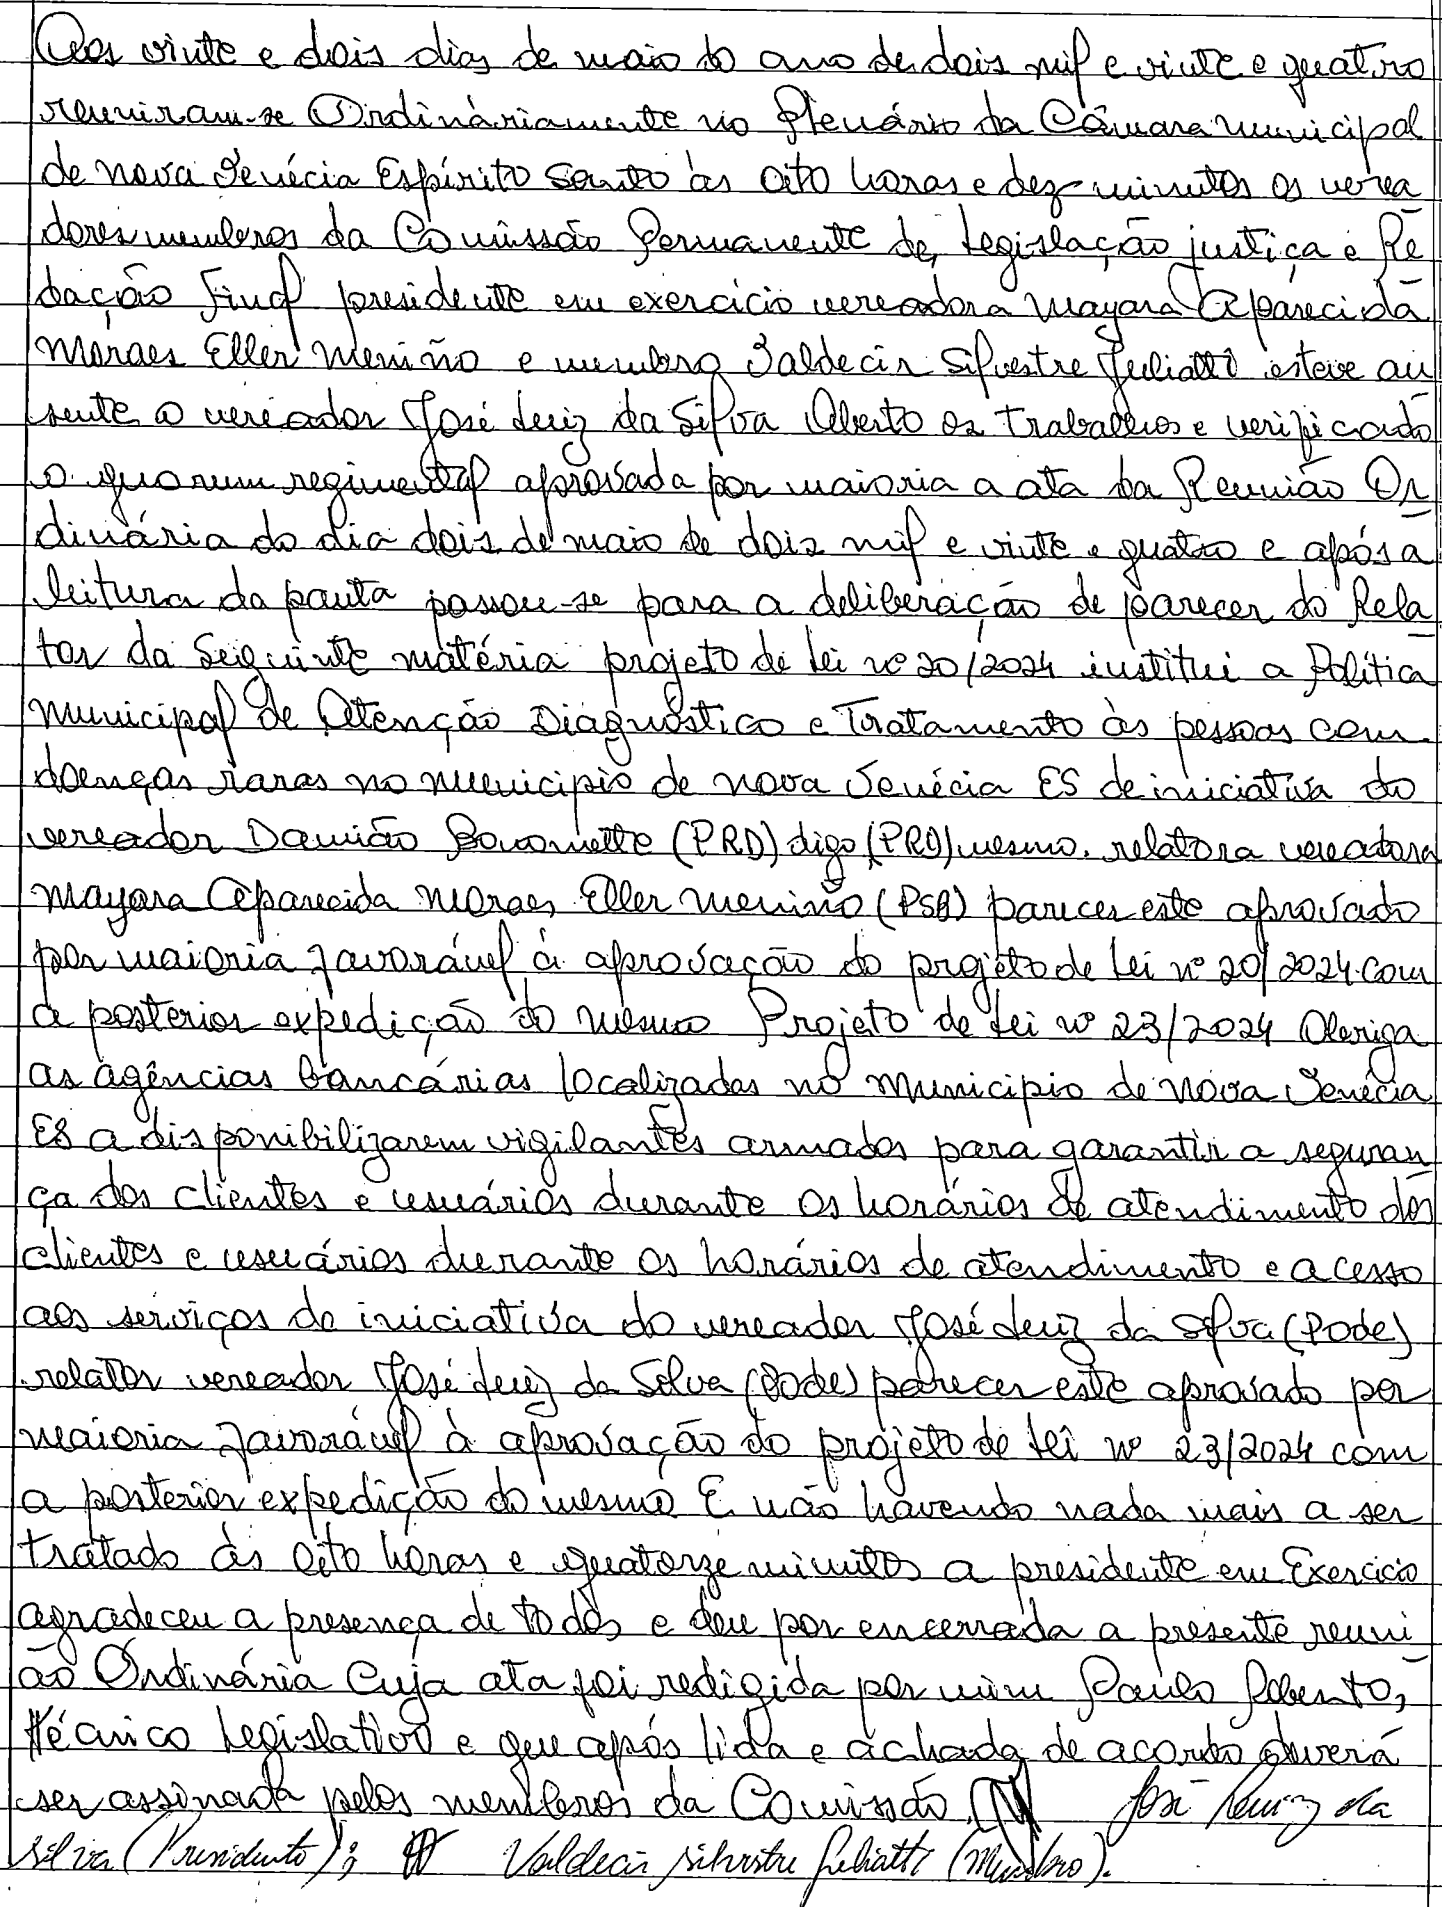 Aos vinte e dois dias de maio do ano de dois mil e vinte e quatro
reuniram-se Ordináriamente no Plenário da Câmara municipal
de nova Venécia Espírito Santo às oito horas e dez minutos os verea
dores membros da Comissão Permanente de, Legislação justiça e Re
dação Final presidente em exercício vereadora Mayara Aparecida
Moraes Eller Meniño e membro Valdecir Silvestre Juliatti esteve au
sente o vereador José Luiz da Silva Aberto os trabalhos e verificado
o quorum regimental aprovada por maioria a ata da Reunião Or
dinária do dia dois de maio de dois mil e vinte e quatro e após a
leitura da pauta passou-se para a deliberação de parecer do Rela
tor da Seguinte matéria projeto de Lei nº 20/2024 institui a Política
Municipal de Atenção Diagnóstico e Tratamento às pessoas com
doenças raras no município de nova Venécia ES de iniciativa do
vereador Damião Bonomette (PRD) digo (PRD) mesmo. relatora vereadora
Mayara Aparecida Moraes Eller Meniño (PSB) parecer este aprovado
por maioria favorável à aprovação do projeto de Lei nº 20/2024 com
a posterior expedição do mesmo Projeto de Lei nº 23/2024 Obriga
as agências bancárias localizadas no município de Nova Venécia
ES a disponibilizarem vigilantes armados para garantir a seguran
ça dos clientes e usuários durante os horários de atendimento dos
clientes e usuários durante os horários de atendimento e acesso
aos serviços de iniciativa do vereador José Luiz da Silva (Pode)
relator vereador José Luiz da Silva (Pode) parecer este aprovado por
maioria favorável à aprovação do projeto de Lei nº 23/2024 com
a posterior expedição do mesmo E não havendo nada mais a ser
tratado às oito horas e quatorze minutos a presidente em Exercício
agradeceu a presença de todos e deu por encerrada a presente reuni
ão Ordinária Cuja ata foi redigida por mim Paulo Roberto,
Técnico Legislativo e que após lida e achada de acordo deverá
ser assinada pelos membros da Comissão. José Luiz da
Silva (Presidente); Valdecir Silvestre Juliatti (Membro).